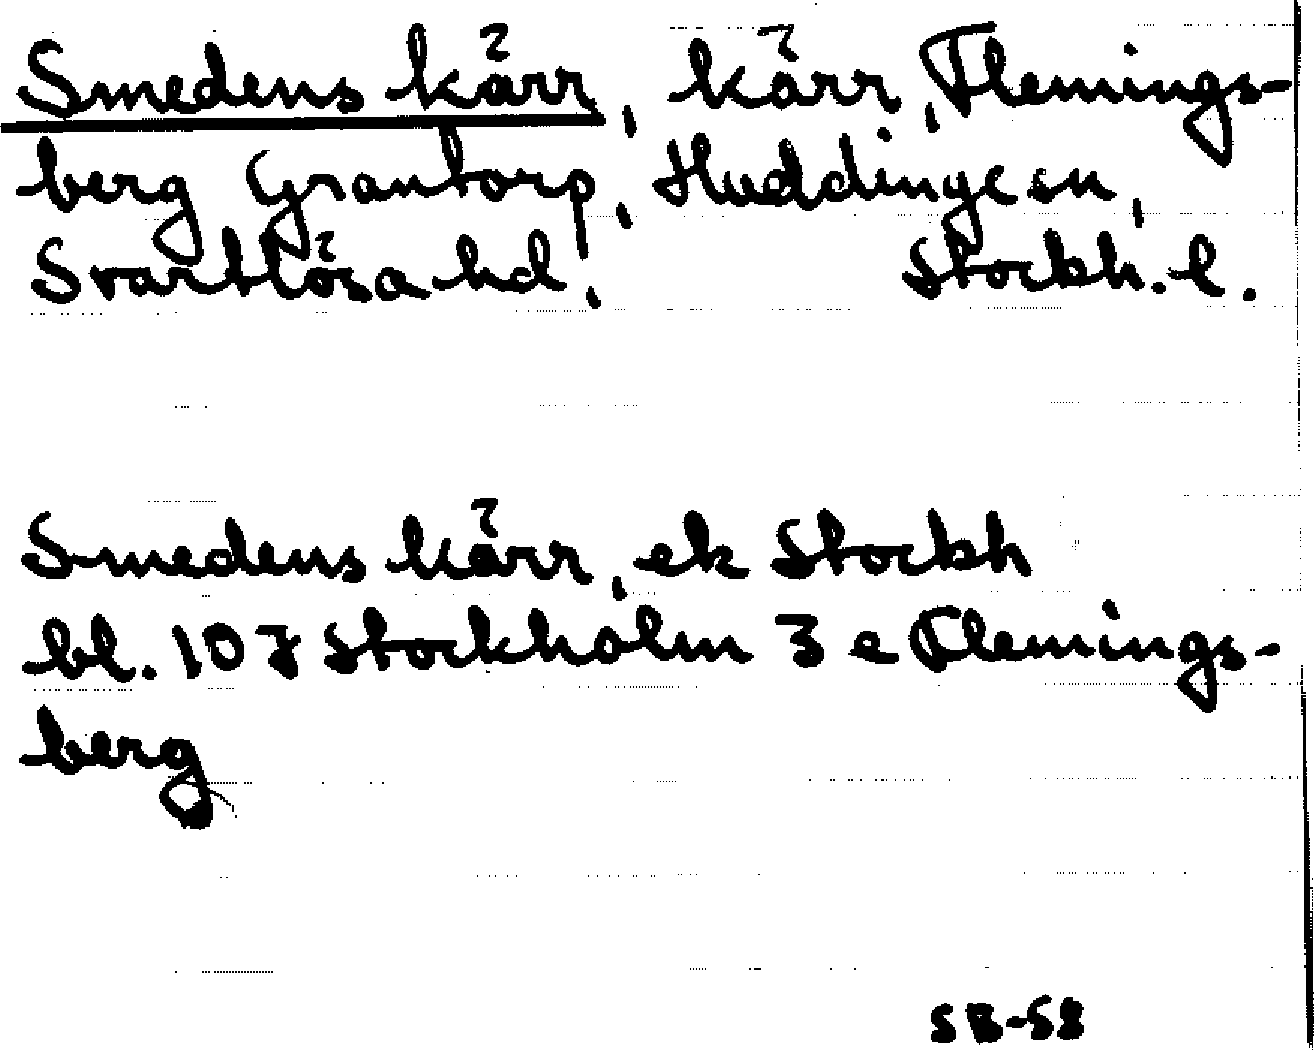 Smedens kärr, kärr, Flemings-
berg Grantorp, Huddinge sn,
Svartlösa hd, Stockh. l.
Smedens kärr, ek Stockh
bl. 107 Stockholm 3 e Flemings-
berg